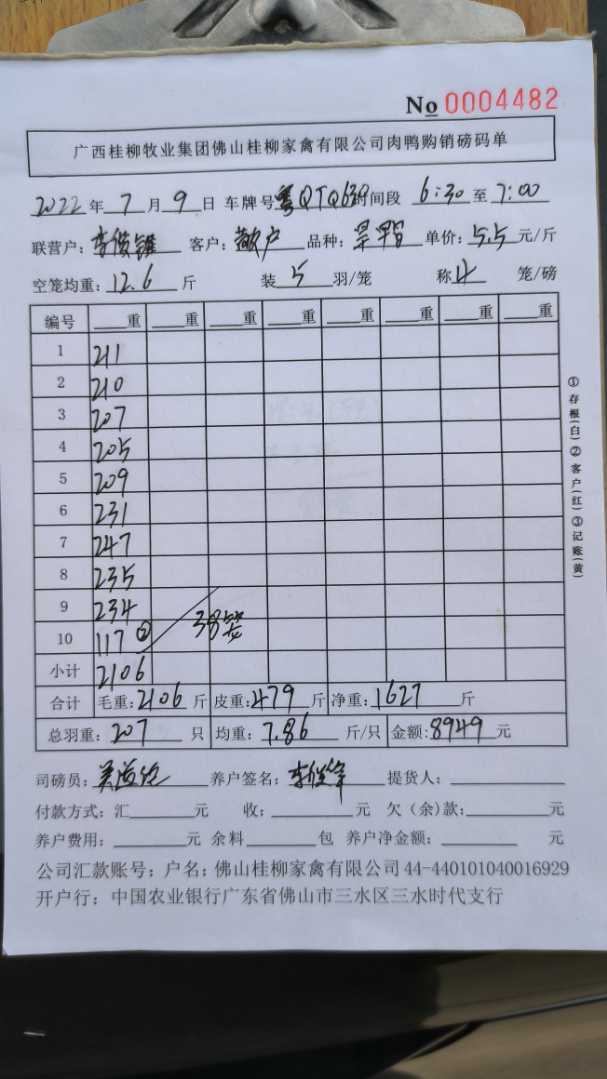 No 0004482
广西桂柳牧业集团佛山桂柳家禽有限公司肉鸭购销磅码单
2022年7月9日 车牌号粤QTQ639时间段 6:30至7:00
联营户:李俊锋 客户:散户 品种:旱鸭 单价:5.5元/斤
空笼均重:12.6斤 装5羽/笼 称4笼/磅
编号 重 重 重 重 重 重 重 重
1 211
2 210
3 207
4 205
5 209
6 231
7 247
8 235
9 234
10 117 ② 38笼
小计 2106
合计 毛重:2106斤 皮重:479斤 净重:1627斤
总羽重:207只 均重:7.86斤/只 金额:8949元
司磅员: 养户签名:李俊锋 提货人:
付款方式:汇 元 收: 元 欠(余)款: 元
养户费用: 元 余料 包 养户净金额: 元
公司汇款账号:户名:佛山桂柳家禽有限公司 44-440101040016929
开户行:中国农业银行广东省佛山市三水区三水时代支行
①存根(白)②客户(红)③记账(黄)